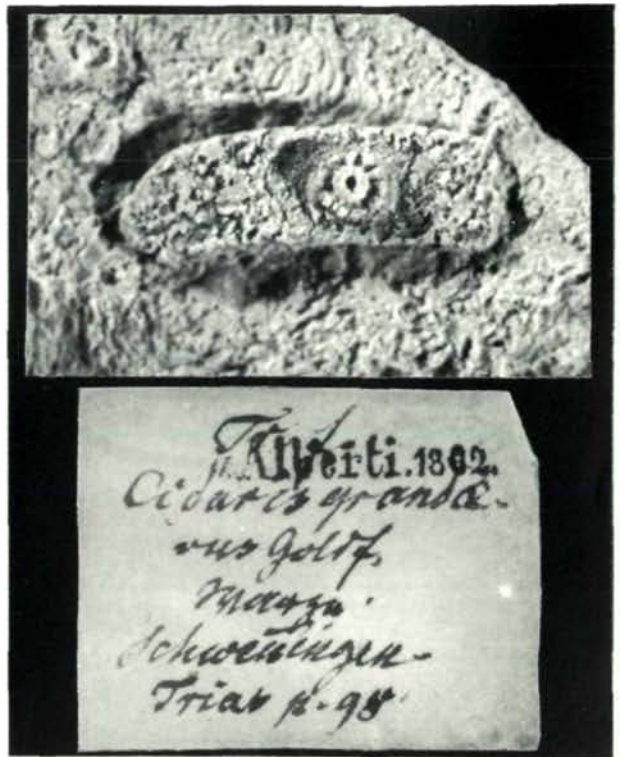 v. Alberti. 1862.
Cidaris grandæ-
vus Goldf.
Schwenningen
Trias p. 98